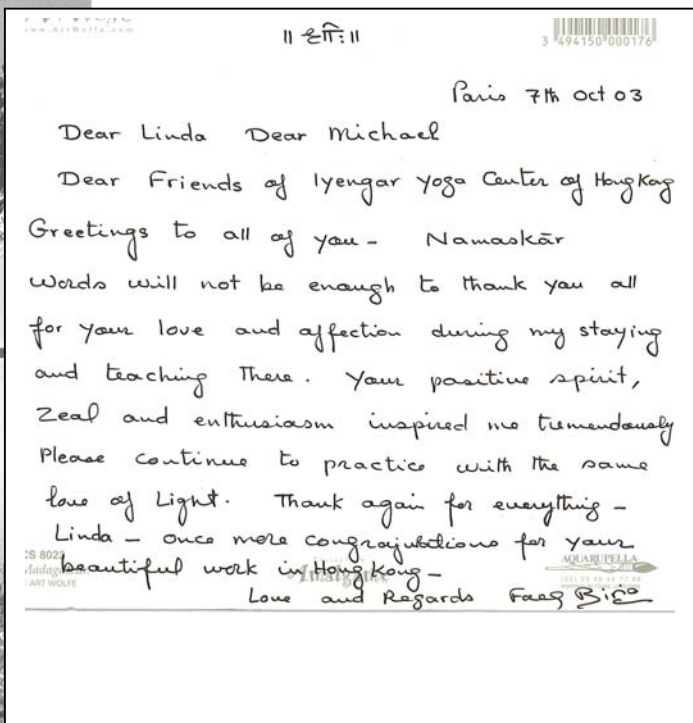 www.ArtWolfe.com
3 494150 000176
Paris 7th Oct 03
Dear Linda Dear Michael
Dear Friends of Iyengar Yoga Center of Hong Kong
Greetings to all of you - Namaskār
Words will not be enough to thank you all
for your love and affection during my staying
and teaching There. Your positive spirit,
Zeal and enthusiasm inspired me tremendously
Please continue to practice with the same
love of Light. Thank again for everything -
Linda - once more congrajulations for your
beautiful work in Hong Kong -
Love and Regards Faeq Biria
CS 8022
ART WOLFE
AQUARUPELLA